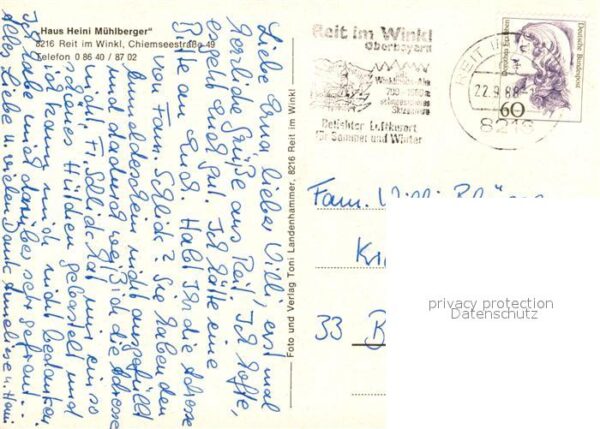 "Haus Heini Mühlberger"
8216 Reit im Winkl, Chiemseestraße 49
Telefon 0 86 40 / 87 02
Liebe Erna, lieber Willi, erst mal
herzliche Grüße aus Reit. Ich hoffe,
es geht Euch gut. Ich hätte eine
Bitte an Euch. Habt Ihr die Adresse
von Fam. Schlick? Sie haben den
Anmeldeschein nicht ausgefüllt
und dadurch weiß ich die Adresse
nicht. Fr. Schlick hat mir ein so
schönes Hütchen gebastelt und
ich kann mich nicht bedanken.
Ich habe mich darüber sehr gefreut.
Alles Liebe u. vielen Dank Anneliese u. Hani
Foto und Verlag Toni Landenhammer, 8216 Reit im Winkl
Reit im Winkl
Oberbayern
700 -
Beliebter Luftkurort
für Sommer und Winter
REIT IM
22.9.88
8216
Deutsche Bundespost
Dorothea Erxleben
60
Fam. Willi
33 B
privacy protection
Datenschutz